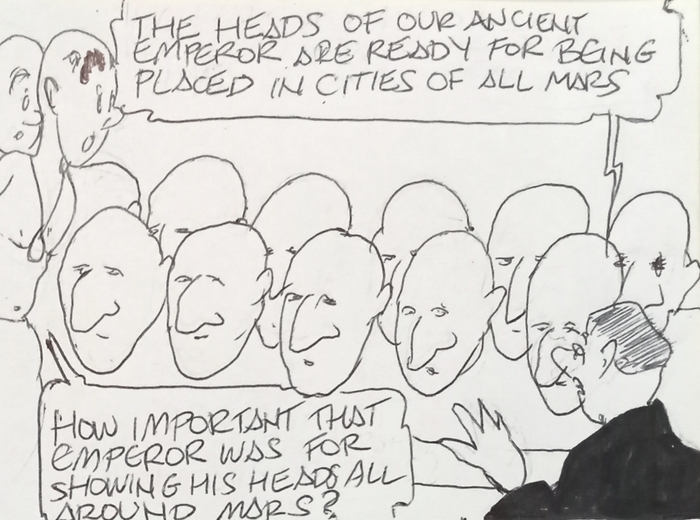 THE HEADS OF OUR ANCIENT
EMPEROR ARE READY FOR BEING
PLACED IN CITIES OF ALL MARS
HOW IMPORTANT THAT
EMPEROR WAS FOR
SHOWING HIS HEADS ALL
AROUND MARS?